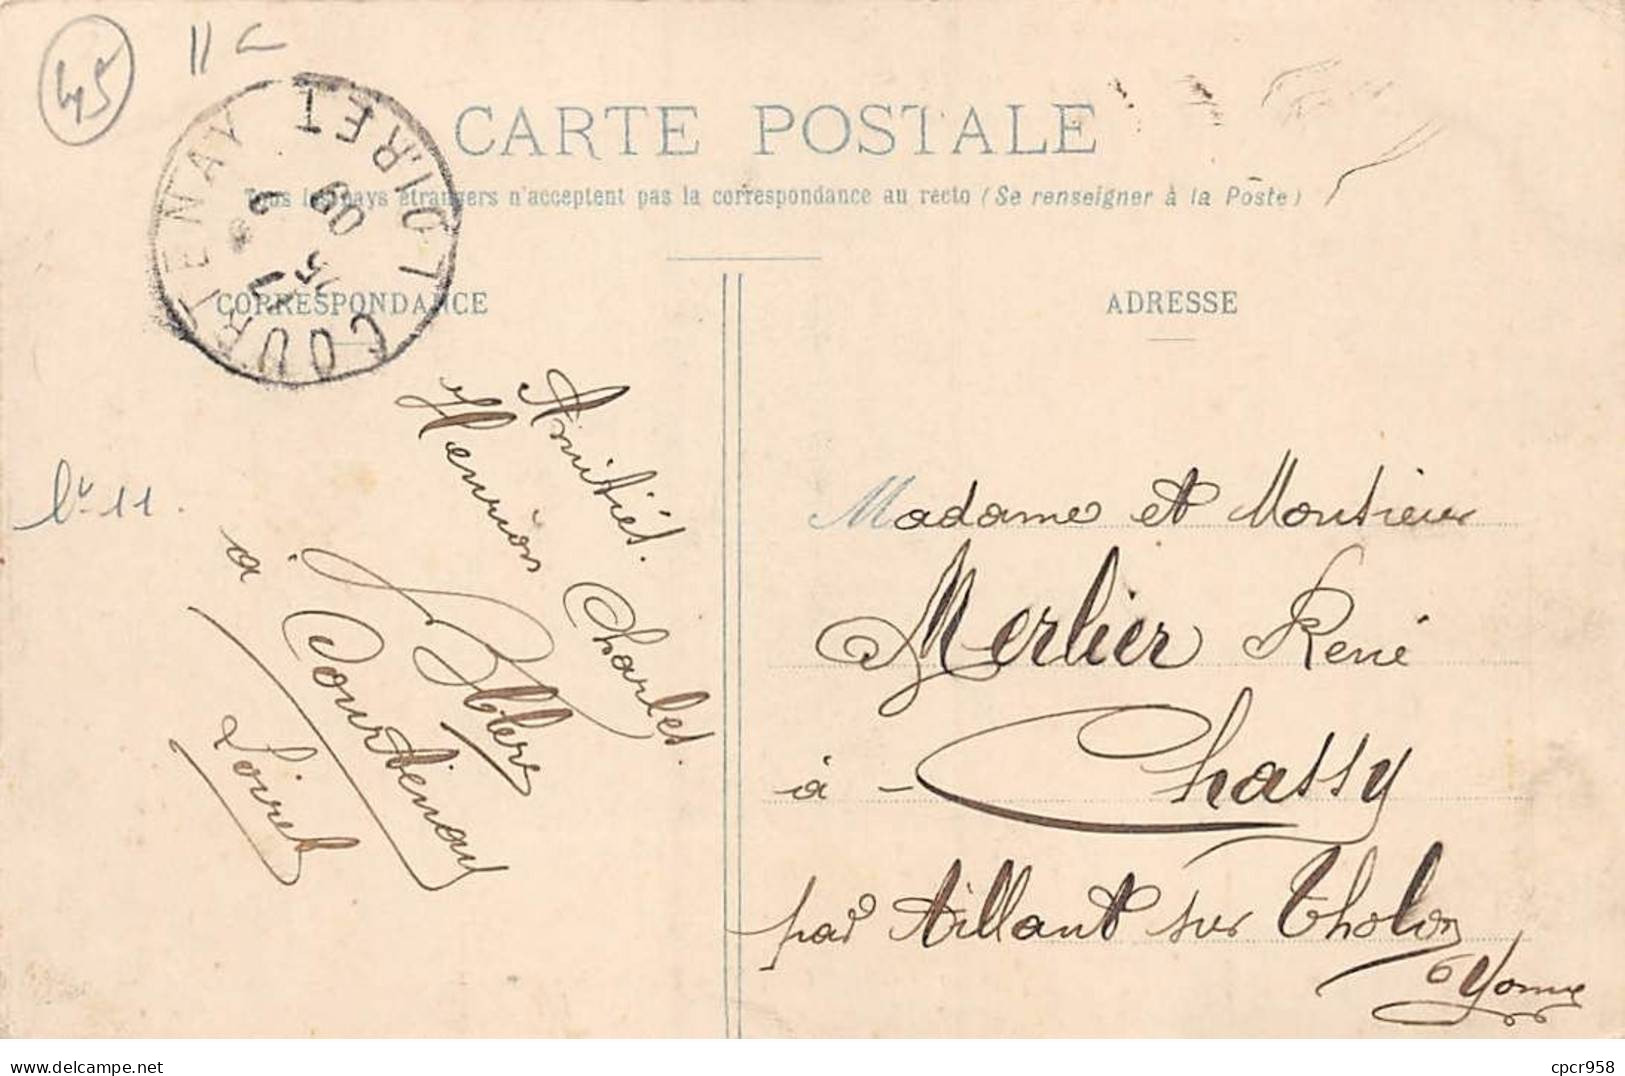 45
11
CARTE POSTALE
Tous les pays étrangers n'acceptent pas la correspondance au recto (Se renseigner à la Poste)
COURTENAY LOIRET
7
25
09
CORRESPONDANCE
ADRESSE
Amitiés.
Henrion Charles.
à Courtenay
Loiret
11.
Madame et Monsieur
Merlier René
à - Chassy
par Aillant sur Tholon
Yonne
delcampe.net
cpcr958